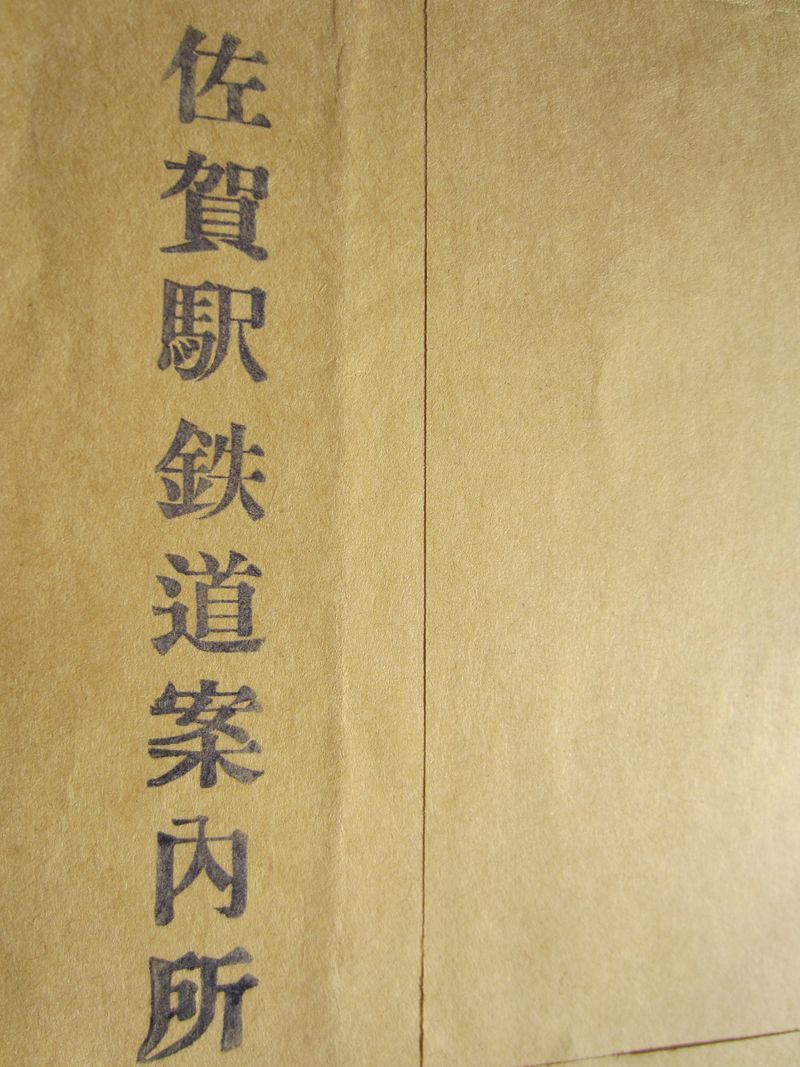 佐賀駅鉄道案内所